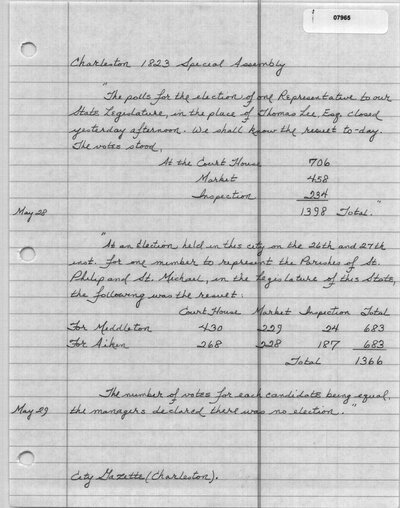 07965
Charleston 1823 Special Assembly
"The polls for the election of one Representative to our
State Legislature, in the place of Thomas Lee, Esq. closed
yesterday afternoon. We shall know the result to-day.
The votes stood,
At the Court House 706
Market 458
Inspection 234
May 28 1398 Total."
"At an Election held in this city on the 26th and 27th
inst. for one member to represent the Parishes of St.
Philip and St. Michael, in the Legislature of this State,
the following was the result:
Court House Market Inspection Total
For Middleton 430 229 24 683
For Aiken 268 228 187 683
Total 1366
The number of votes for each candidate being equal,
May 29 the managers declared there was no election."
City Gazette (Charleston).